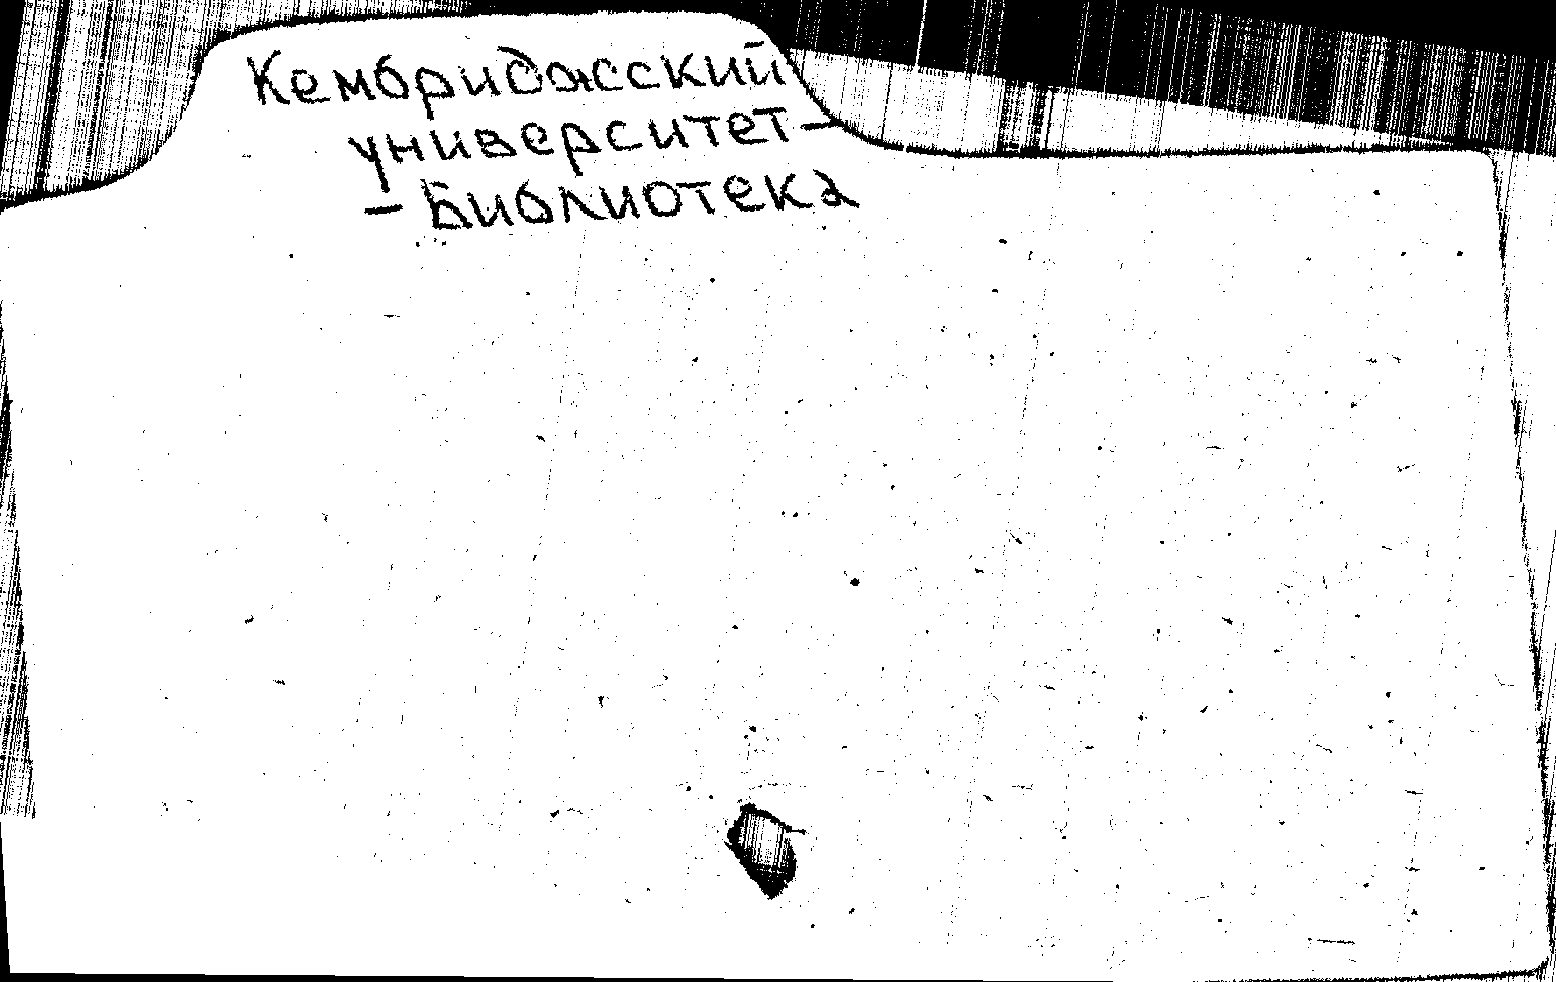 Кембриджский
университет –
– Библиотека